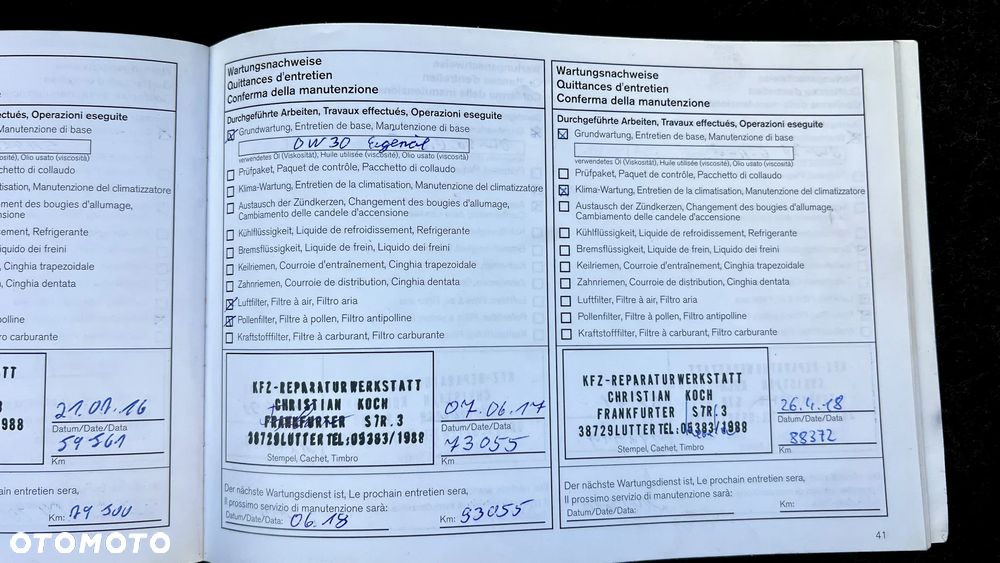 ectués, Operazioni eseguite
, Manutenzione di base
osité), Olio usato (viscosità)
acchetto di collaudo
atisation, Manutenzione del climatizzatore
ment des bougies d'allumage,
ensione
issement, Refrigerante
iquido dei freini
, Cinghia trapezoidale
, Cinghia dentata
ia
tipolline
tro carburante
TT
3
988
21.07.16
Datum/Date/Data
59 561
Km
hain entretien sera,
Km: 79 500
Wartungsnachweise
Quittances d'entretien
Conferma della manutenzione
Durchgeführte Arbeiten, Travaux effectués, Operazioni eseguite
Grundwartung, Entretien de base, Manutenzione di base
0W30
verwendetes Öl (Viskosität), Huile utilisée (viscosité), Olio usato (viscosità)
Prüfpaket, Paquet de contrôle, Pacchetto di collaudo
Klima-Wartung, Entretien de la climatisation, Manutenzione del climatizzatore
Austausch der Zündkerzen, Changement des bougies d'allumage,
Cambiamento delle candele d'accensione
Kühlflüssigkeit, Liquide de refroidissement, Refrigerante
Bremsflüssigkeit, Liquide de frein, Liquido dei freini
Keilriemen, Courroie d'entraînement, Cinghia trapezoidale
Zahnriemen, Courroie de distribution, Cinghia dentata
Luftfilter, Filtre à air, Filtro aria
Pollenfilter, Filtre à pollen, Filtro antipolline
Kraftstofffilter, Filtre à carburant, Filtro carburante
KFZ-REPARATURWERKSTATT
CHRISTIAN KOCH
FRANKFURTER STR.3
38729LUTTER TEL:05383/1988
Stempel, Cachet, Timbro
07.06.17
Datum/Date/Data
73055
Km
Der nächste Wartungsdienst ist, Le prochain entretien sera,
Il prossimo servizio di manutenzione sarà:
Datum/Date/Data: 06.18
Km: 93055
Wartungsnachweise
Quittances d'entretien
Conferma della manutenzione
Durchgeführte Arbeiten, Travaux effectués, Operazioni eseguite
Grundwartung, Entretien de base, Manutenzione di base
verwendetes Öl (Viskosität), Huile utilisée (viscosité), Olio usato (viscosità)
Prüfpaket, Paquet de contrôle, Pacchetto di collaudo
Klima-Wartung, Entretien de la climatisation, Manutenzione del climatizzatore
Austausch der Zündkerzen, Changement des bougies d'allumage,
Cambiamento delle candele d'accensione
Kühlflüssigkeit, Liquide de refroidissement, Refrigerante
Bremsflüssigkeit, Liquide de frein, Liquido dei freini
Keilriemen, Courroie d'entraînement, Cinghia trapezoidale
Zahnriemen, Courroie de distribution, Cinghia dentata
Luftfilter, Filtre à air, Filtro aria
Pollenfilter, Filtre à pollen, Filtro antipolline
Kraftstofffilter, Filtre à carburant, Filtro carburante
KFZ-REPARATURWERKSTATT
CHRISTIAN KOCH
FRANKFURTER STR.3
38729LUTTER TEL:05383/1988
Stempel, Cachet, Timbro
26.4.18
Datum/Date/Data
88372
Km
Der nächste Wartungsdienst ist, Le prochain entretien sera,
Il prossimo servizio di manutenzione sarà:
Datum/Date/Data:
Km:
41
OTOMOTO